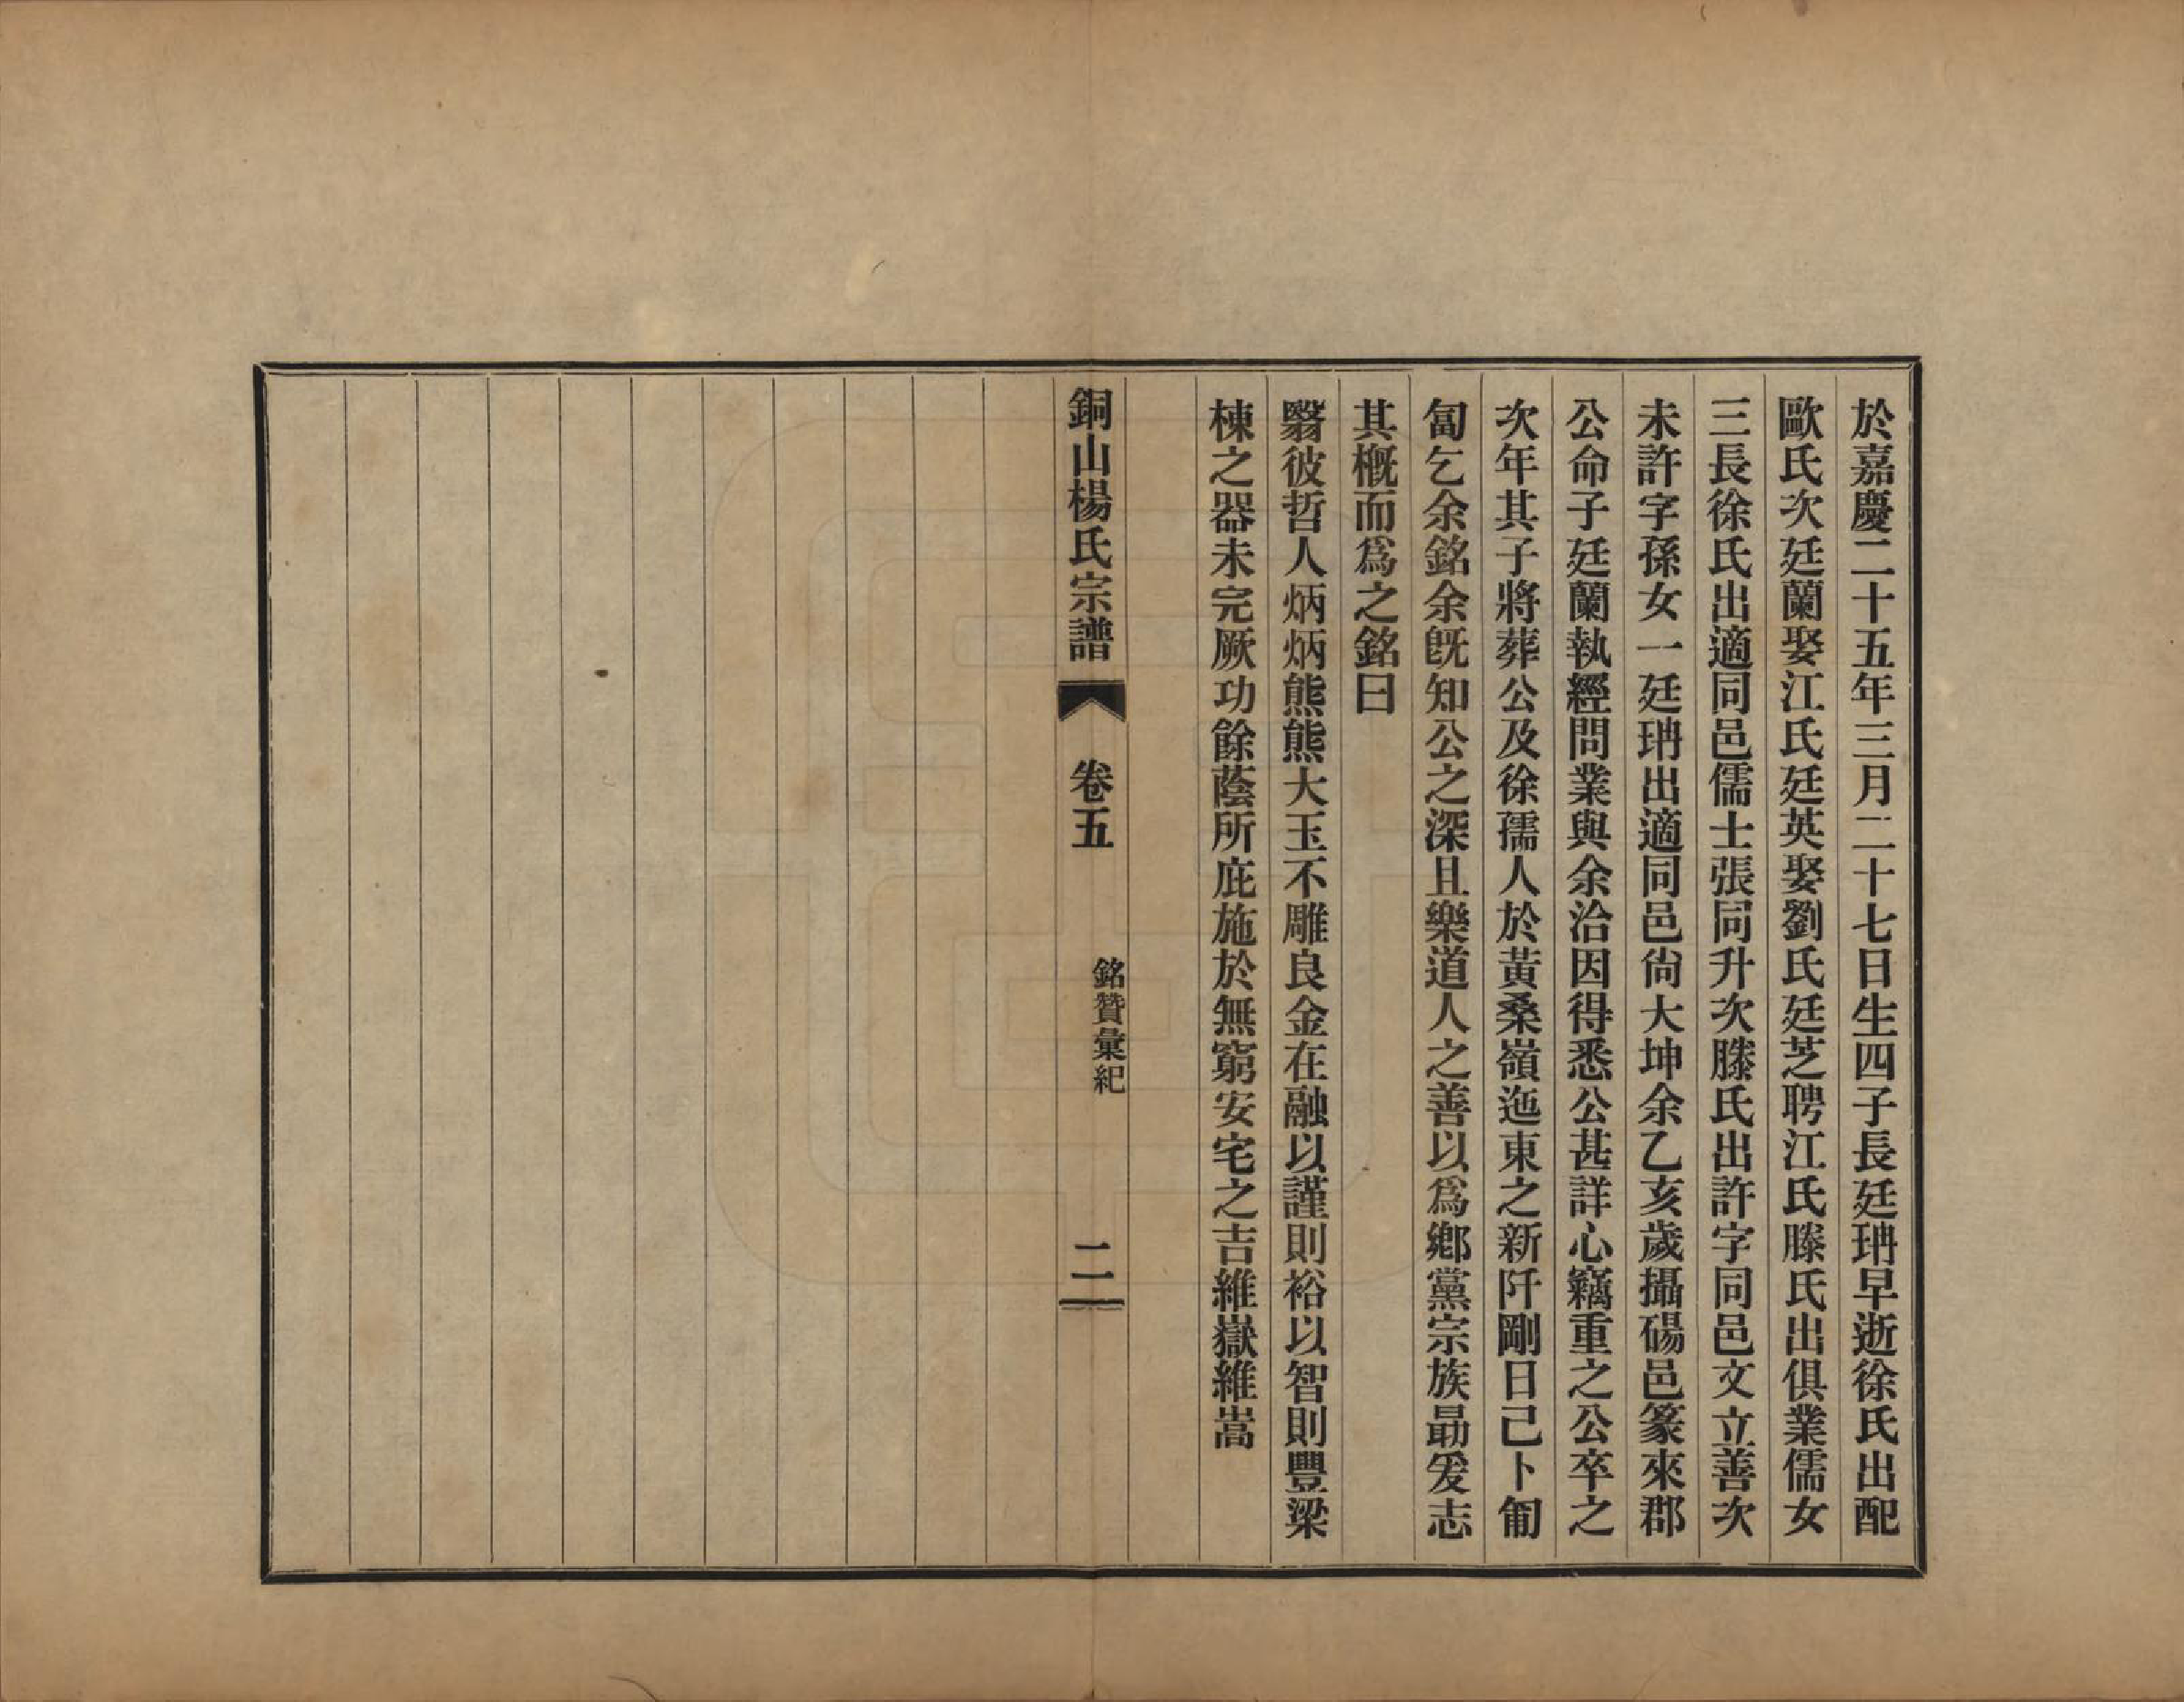 於嘉慶二十五年三月二十七日生四子長廷珃早逝徐氏出配
歐氏次廷蘭娶江氏廷英娶劉氏廷芝聘江氏滕氏出俱業儒女
三長徐氏出適同邑儒士張同升次滕氏出許字同邑文立善次
未許字孫女一廷珃出適同邑尙大坤余乙亥歲攝碭邑篆來郡
公命子廷蘭執經問業與余洽因得悉公甚詳心竊重之公卒之
次年其子將葬公及徐孺人於黃桑嶺迤東之新阡剛日已卜匍
匐乞余銘余旣知公之深且樂道人之善以爲鄕黨宗族勗爰志
其槪而爲之銘曰
翳彼哲人炳炳熊熊大玉不雕良金在融以謹則裕以智則豐梁
棟之器未完厥功餘蔭所庇施於無窮安宅之吉維嶽維嵩
銅山楊氏宗譜 卷五 銘贊彙紀 二